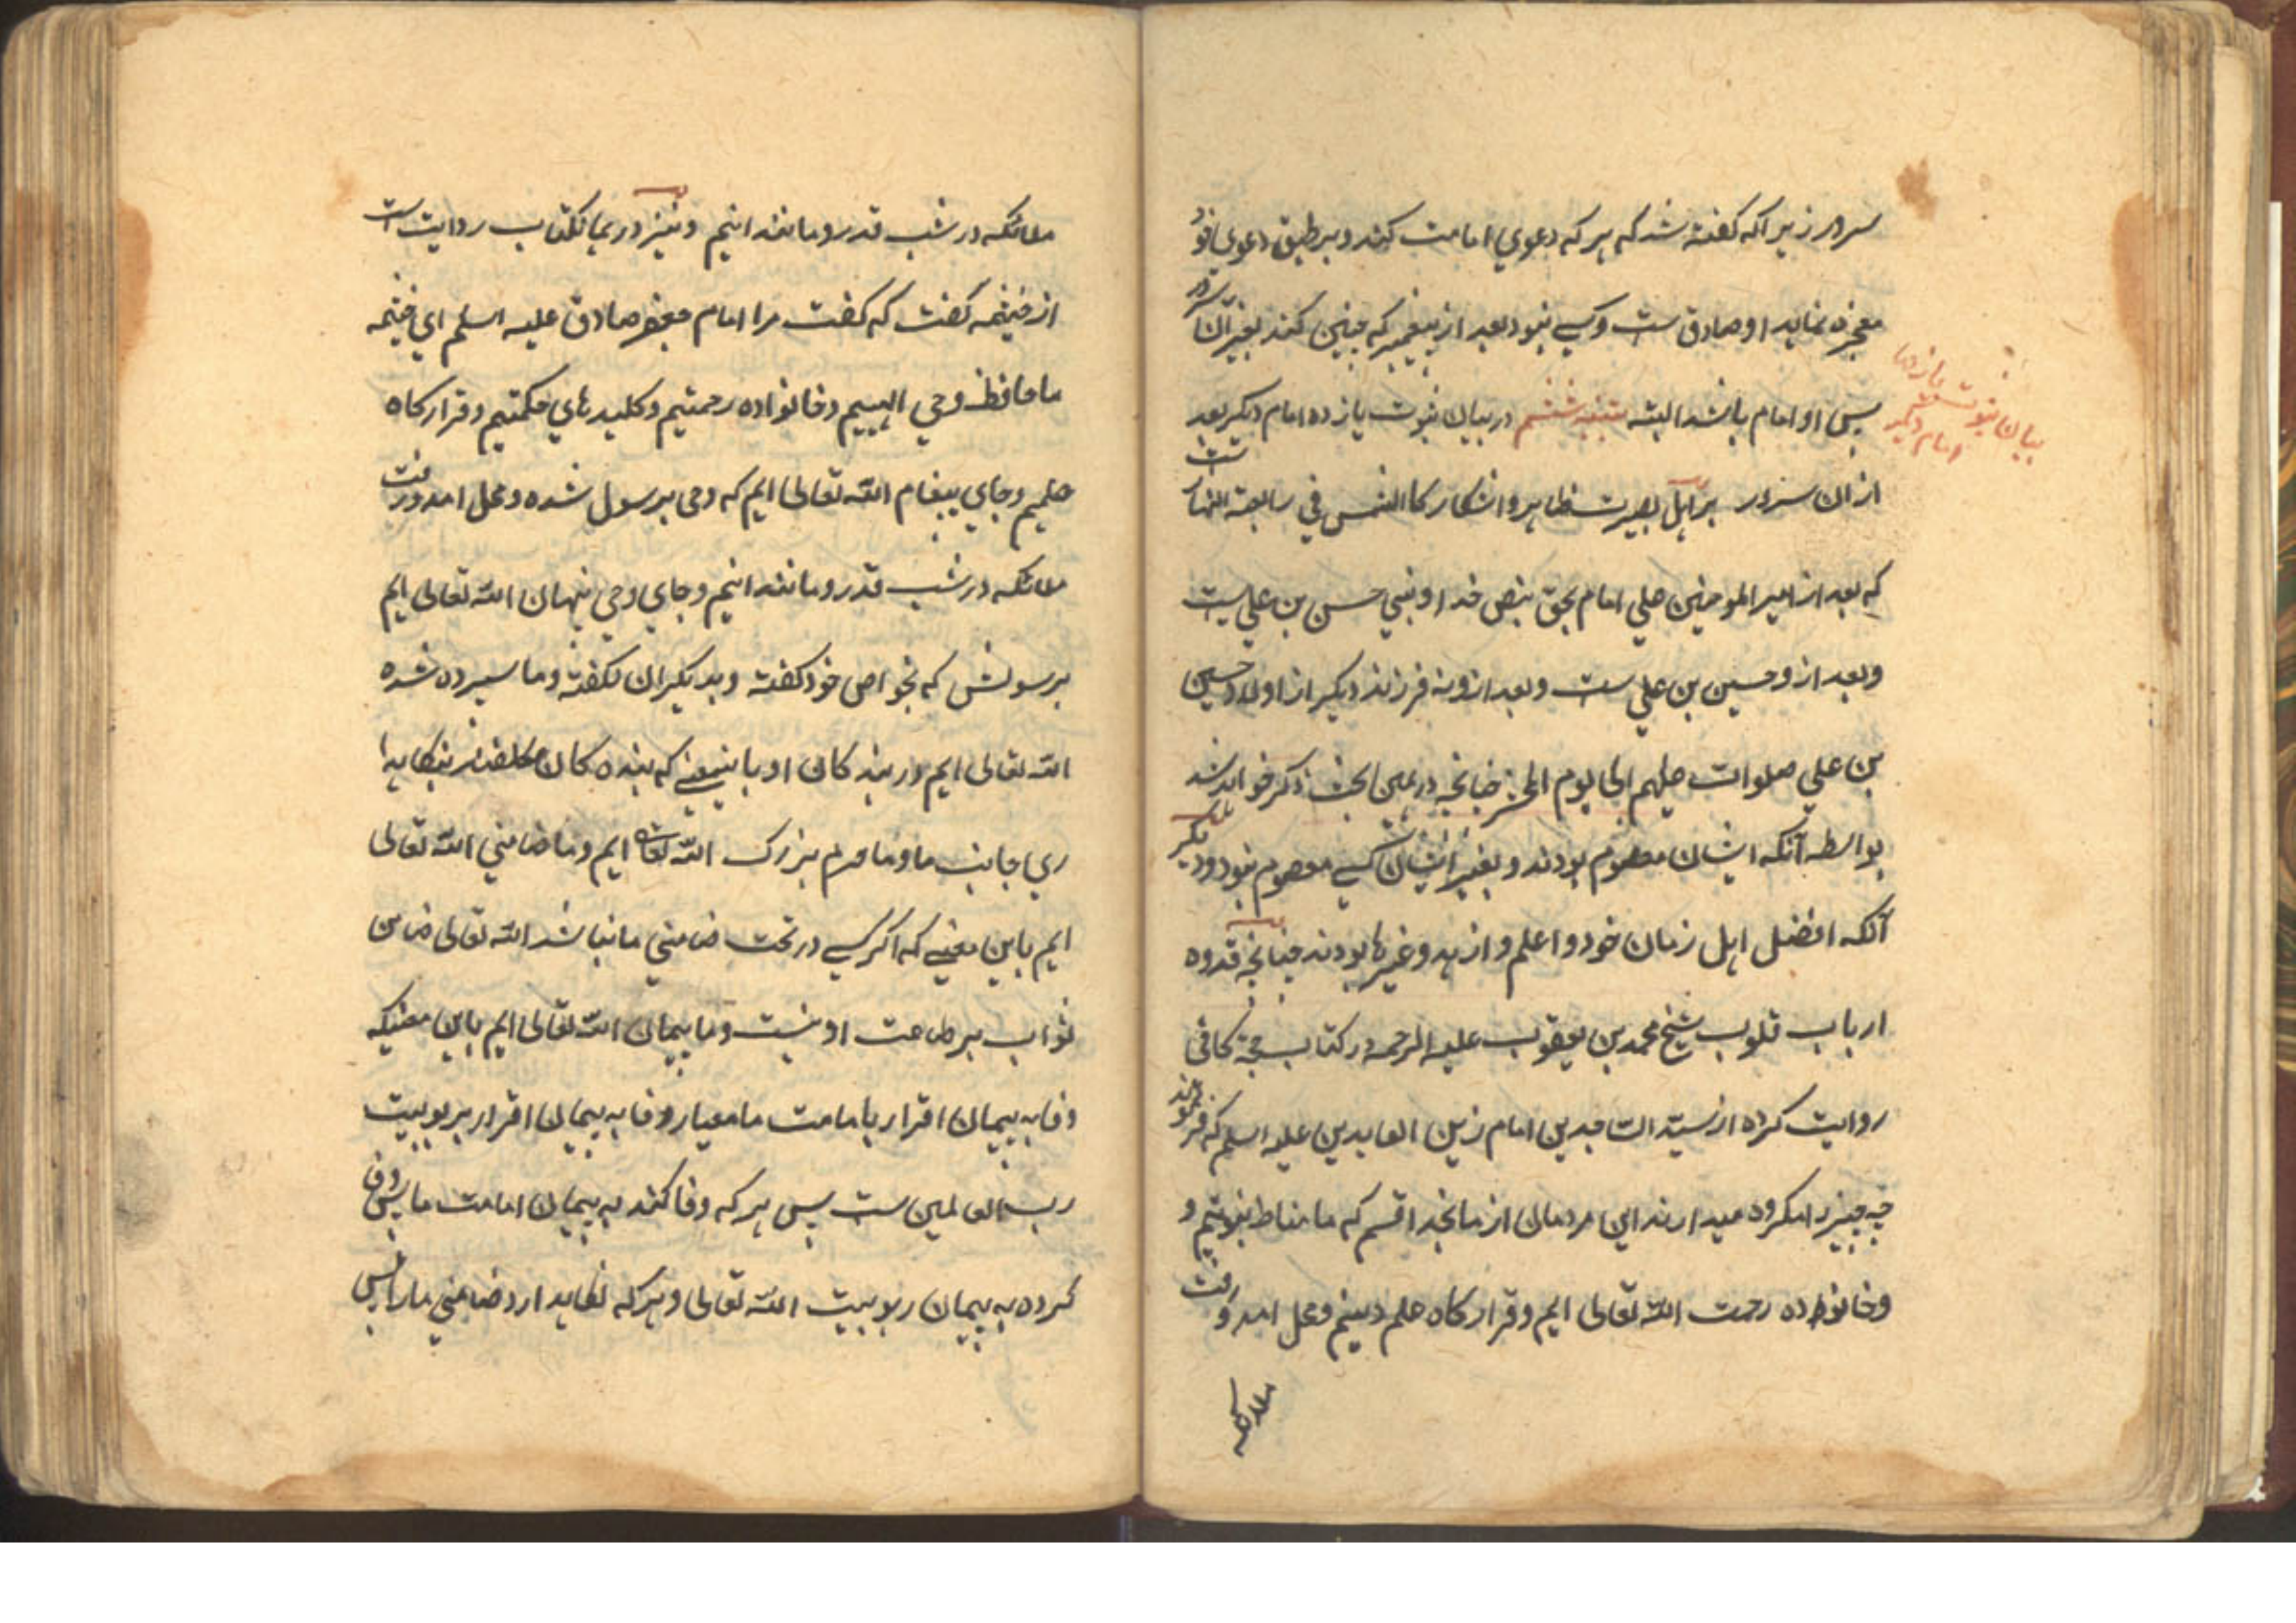 سرور زیراکه گفته شد که هر که دعوی امامت کند و بر طبق دعوی خود
معجزه نماید او صادق ست و کسی نبود بعد از پیغمبر که چنین کند بغیر آن سرور
پس او امام باشد البته تنبیه ششم در بیان ثبوت یازده امام دیگر بعد
بیان ثبوت یازده امام دیگر
از ان سرور بر اهل بصیرت ظاهر و اشکار کالشمس فی رابعة النهار ست
که بعد از امیر المومنین علی امام بحق بنص خدا و نبی حسن بن علی ست
و بعد از و حسین بن علی ست و بعد ازو نه فرزند دیگر از اولاد حسین
بن علی صلوات علیهم الی یوم الحشر چنانچه در همین بحث ذکر خواهد شد
بواسطه آنکه ایشان معصوم بودند و بغیر ایشان کسی معصوم نبود و دیگر
آنکه افضل اهل زمان خود و اعلم و ازهد و غیرها بودند چنانچه قدوه
ارباب قلوب شیخ محمد بن یعقوب علیه الرحمه در کتاب حجة کافی
روایت کرده از سید الساجدین امام زین العابدین علیه السلم که فرمودند
چه چیز را مکروه میدارند این مردمان از ما بخدا قسم که ما مناط نبوتیم و
و خانواده رحمت الله تعالی ایم و قرارگاه علم دینیم و محل امد و رفت
ملائکه
ملائکه در شب قدر و مانند اینیم و نیز در همانکتاب روایت است
از خیثمه گفت که گفت مرا امام جعفر صادق علیه السلم ای خیثمه
ما حافظ وحی الهییم و خانواده رحمتیم و کلیدهای حکمتیم و قرارگاه
علمیم و جای پیغام الله تعالی ایم که وحی برسول شده و محل امد و رفت
ملائکه در شب قدر و مانند اینیم و جای وحی پنهان الله تعالی ایم
برسولش که بخواص خود گفته و بدیگران نگفته و ما سپرده شده
الله تعالی ایم در بندگان او باینمعنی که بنده کان مکلفند بنگاهدا
ری جانب ما و ما حرم بزرگ الله تعالی ایم و ما ضامنی الله تعالی
ایم باین معنی که اگر کسی در تحت ضامنی ما نباشد الله تعالی ضامن
ثواب بر طاعت او نیست و ما پیمان الله تعالی ایم باین معنیکه
وفا به پیمان اقرار بامامت ما معیار وفا به پیمان اقرار بربوبیت
رب العالمین ست پس هر که وفا کند به پیمان امامت ما پس وفا
کرده به پیمان ربوبیت الله تعالی و هر که نگاهدارد ضامنی ما را پس